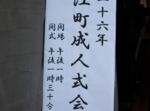 二十六年
江町成人式会
開場 午後一時
開式 午後一時三十分